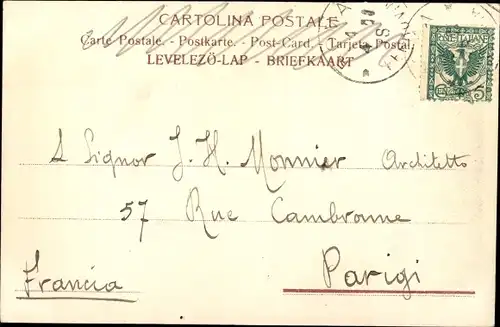 CARTOLINA POSTALE
Carte Postale. - Postkarte. - Post-Card. - Tarjeta Postal.
LEVELEZŐ-LAP - BRIEFKAART
POSTE ITALIANE
5
A Signor J. H. Monnier Architetto
57 Rue Cambronne
Parigi
Francia